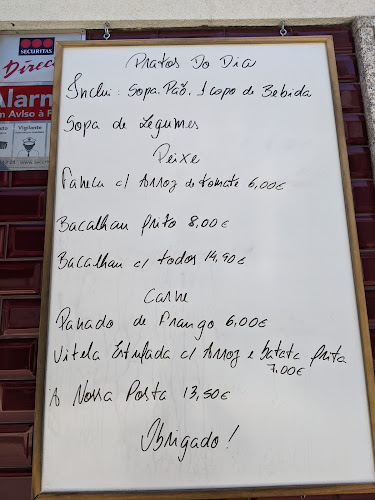 SECURITAS
Direc
Alarm
m Aviso à P
Vigilante
Pratos Do Dia
Inclui: Sopa. Pão. 1 copo de Bebida
Sopa de Legumes
Peixe
Panela c/ Arroz de tomate 6,00€
Bacalhau frito 8,00€
Bacalhau c/ todos 14,90€
Carne
Panado de Frango 6,00€
Vitela Estufada c/ Arroz e batata frita
7,00€
A Nossa Posta 13,50€
Obrigado!